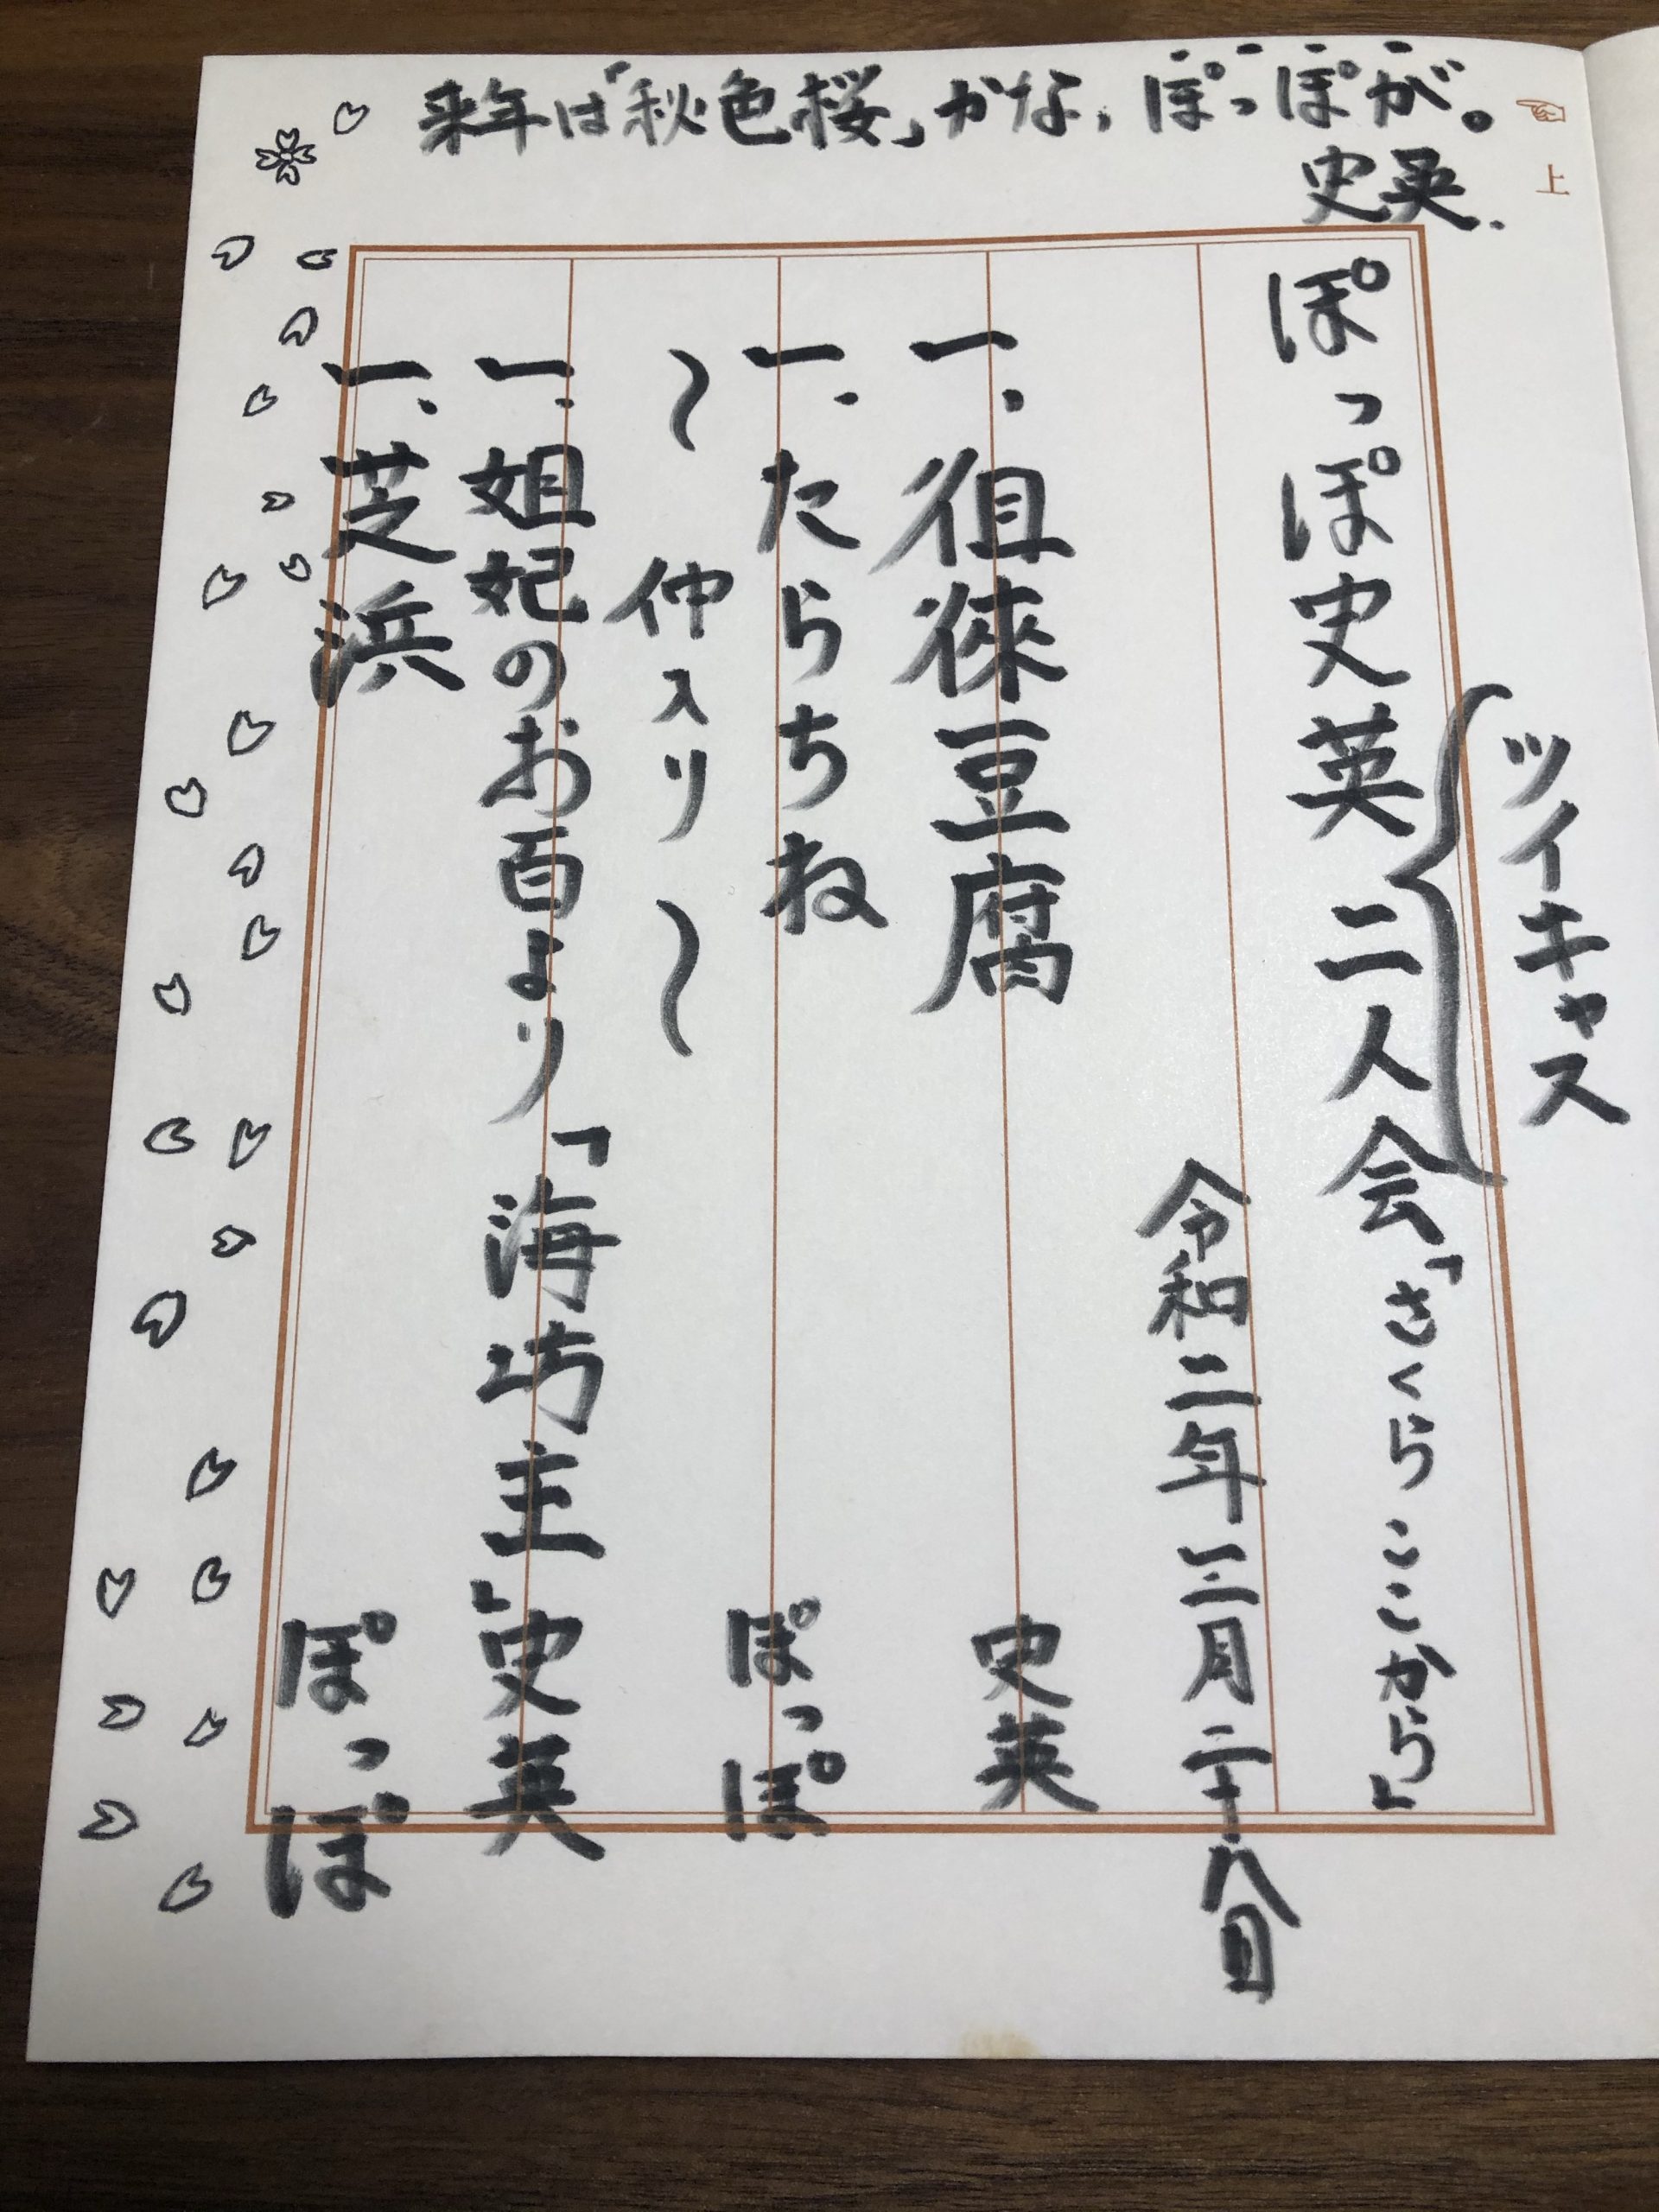 来年は「秋色桜」かな、ぽっぽが。
史英.
☜
上
ツイキャス
ぽっぽ史英二人会「さくらここから」
令和二年三月二十八日
一、徂徠豆腐 史英
一、たらちね ぽっぽ
〜仲入り〜
一、姐妃のお百より「海坊主」史英
一、芝浜 ぽっぽ